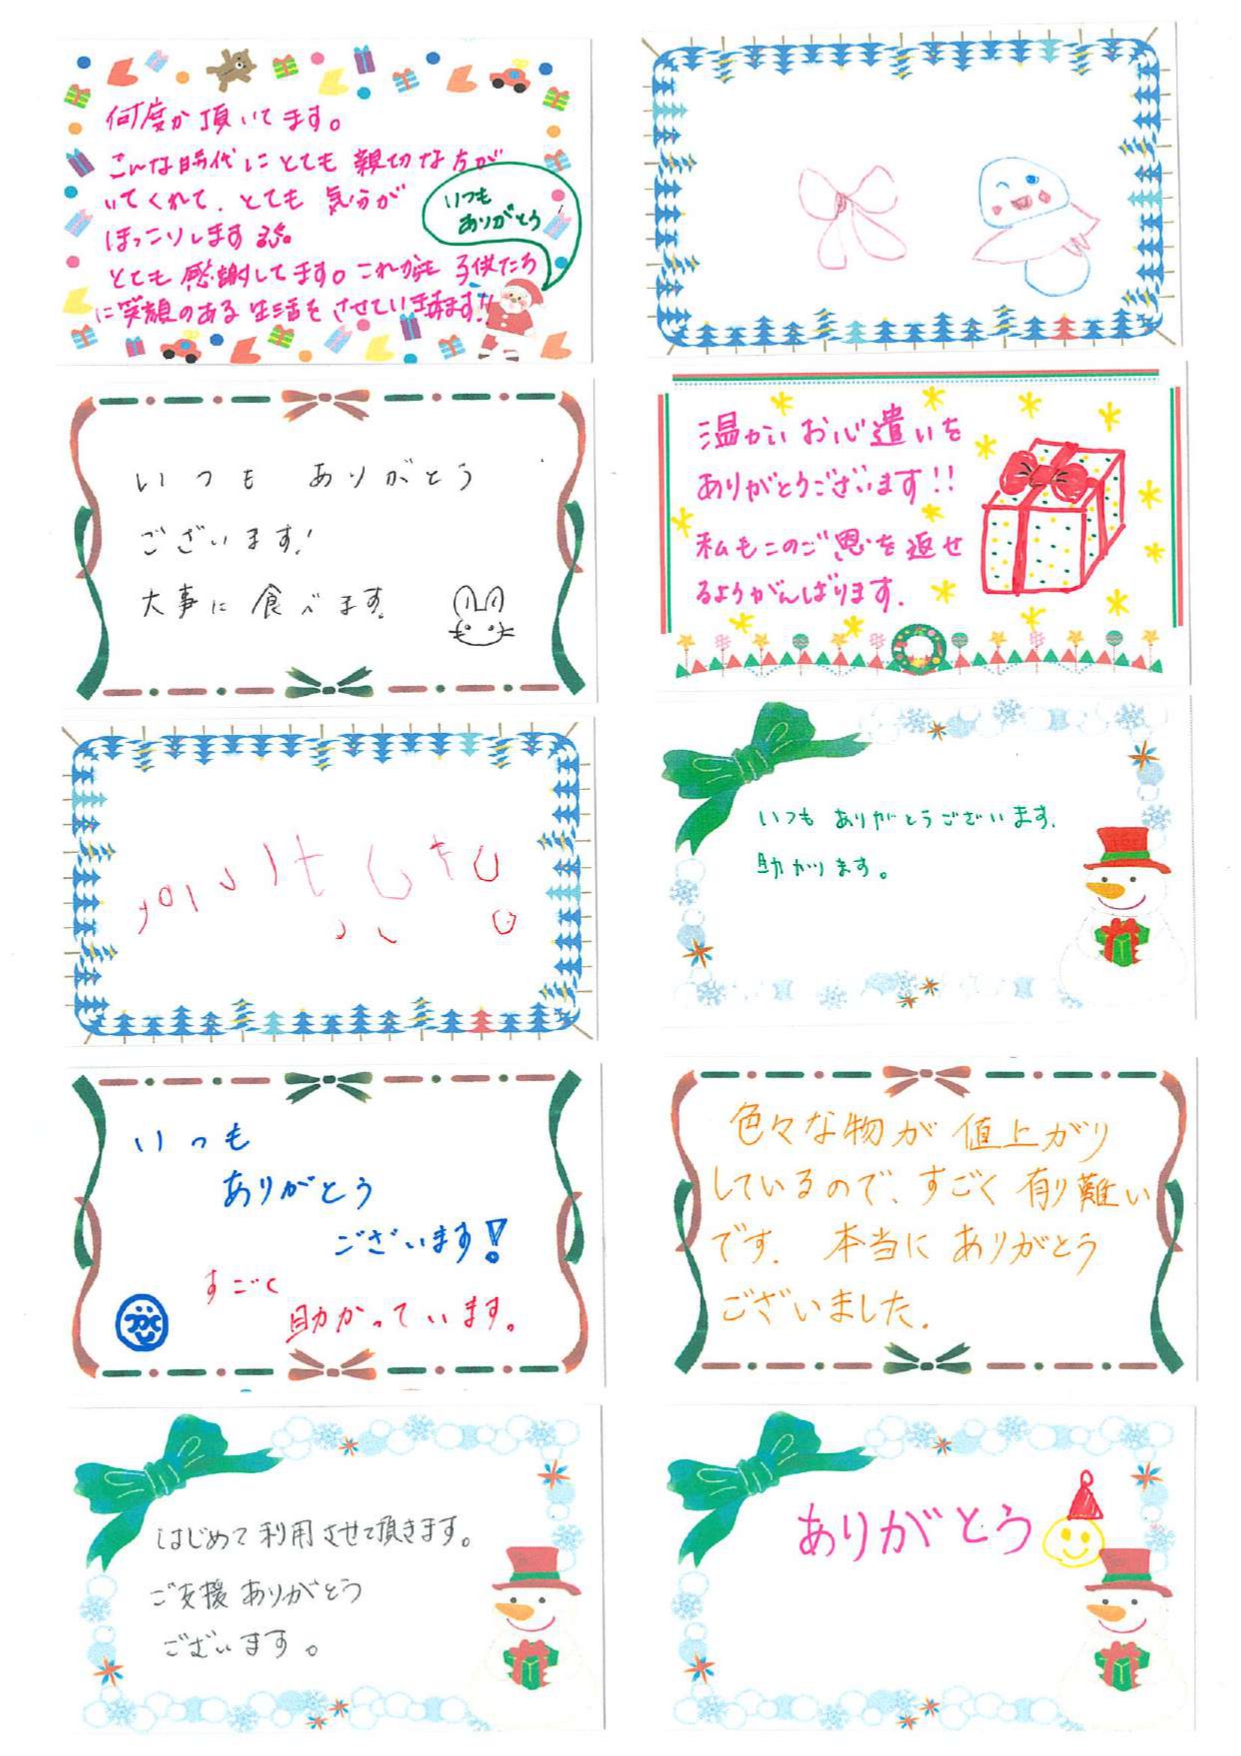 何度か頂いてます。
こんな時代にとても親切な方が
いてくれて、とても気分が
ほっこりします
とても感謝してます。これからも子供たち
に笑顔のある生活をさせていきます!!
いつも
ありがとう
いつも ありがとう
ございます!
大事に食べます。
温かいお心遣いを
ありがとうございます!!
私もこのご恩を返せ
るようがんばります.
いつも ありがとうございます.
助かります。
いつも
ありがとう
ございます!
すごく
助かっています。
色々な物が値上がり
しているので、すごく有り難い
です. 本当にありがとう
ございました.
はじめて利用させて頂きます。
ご支援ありがとう
ございます。
ありがとう